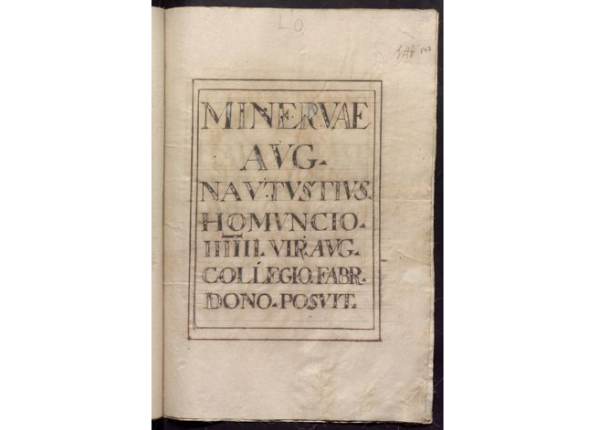 MINERVAE
AVG.
NAV.TVSTIVS.
HOMVNCIO.
IIIIII.VIR.AVG.
COLLEGIO.FABR.
DONO.POSVIT.